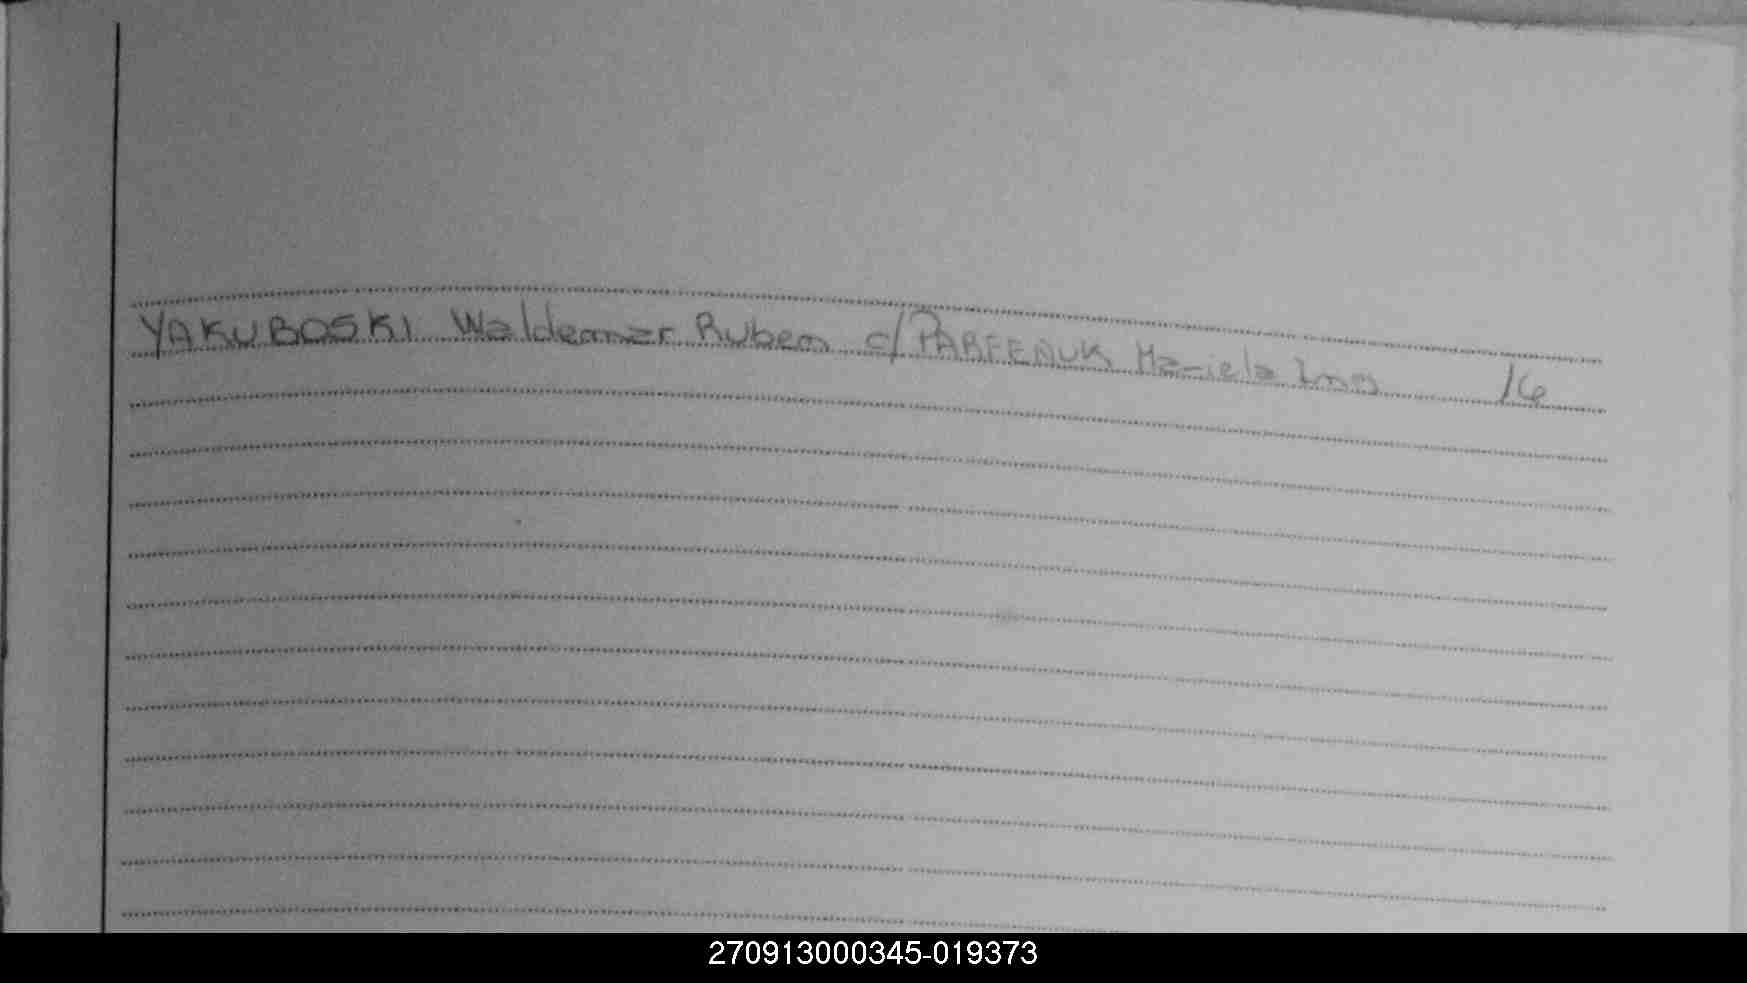 YAKUBOSKI Waldemar Ruben c/ PARFENUK Mariela Ines 16
270913000345-019373